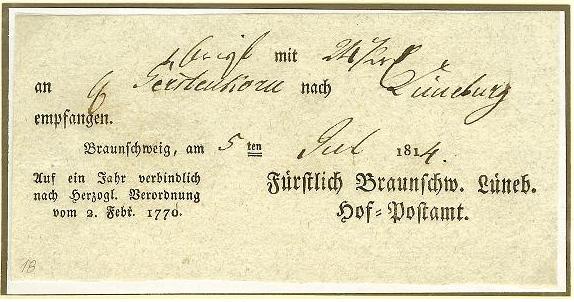 Brief mit 24 
an Gerstenkorn nach Lüneburg
empfangen.
Braunschweig, am 5 ten Jul 1814.
Auf ein Jahr verbindlich
nach Herzogl. Verordnung
vom 2. Febr. 1770.
Fürstlich Braunschw. Lüneb.
Hof-Postamt.
18